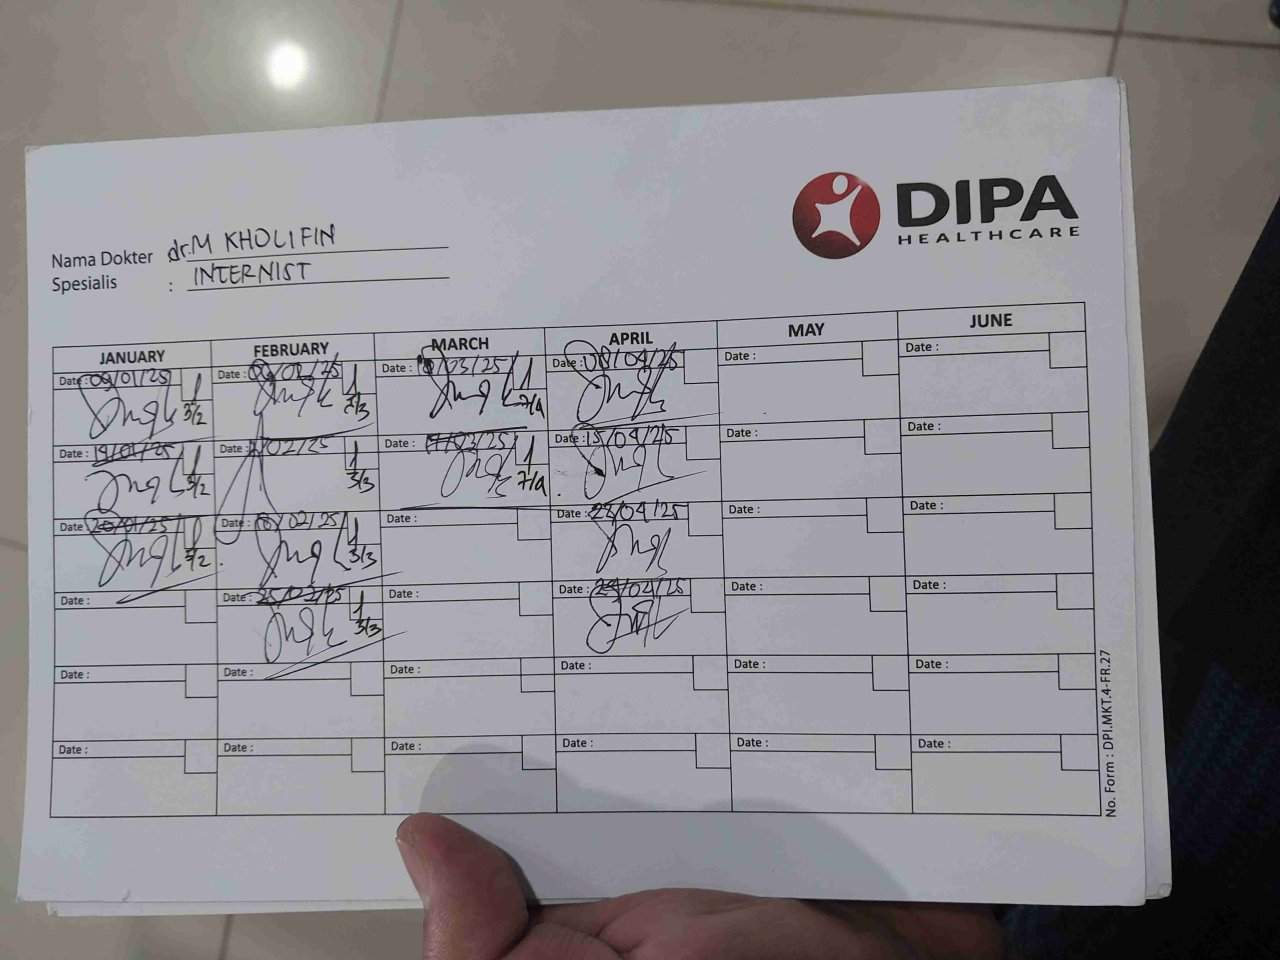 DIPA
HEALTHCARE
Nama Dokter dr.M KHOLIFIN
Spesialis : INTERNIST
JANUARY FEBRUARY MARCH APRIL MAY JUNE
Date : 09/01/25 Date : Date : /03/25 Date : 08/04/25 Date : Date :
3/2 3/3 7/4
Date : 14/01/25 Date : /02/25 Date : 17/03/25 Date : 15/04/25 Date : Date :
3/2 3/3 7/4
Date : 20/01/25 Date : 18/02/25 Date : Date : 22/04/25 Date : Date :
3/2 3/3
Date : Date : 25/02/25 Date : Date : 29/04/25 Date : Date :
3/3
Date : Date : Date : Date : Date : Date :
Date : Date : Date : Date : Date : Date :
No. Form : DPI.MKT.4-FR.27